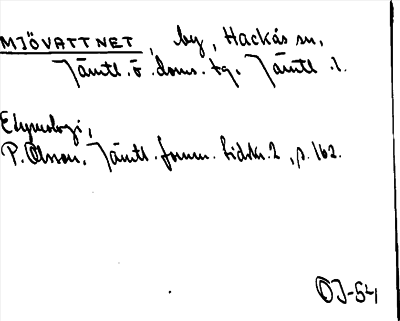 MJÖVATTNET, by, Hackås sn,
Jämtl. ö. doms. tg. Jämtl. l.
Etymologi,
P. Olsson, Jämtl. fornm. tidskr. 2, s. 162.
OJ-54